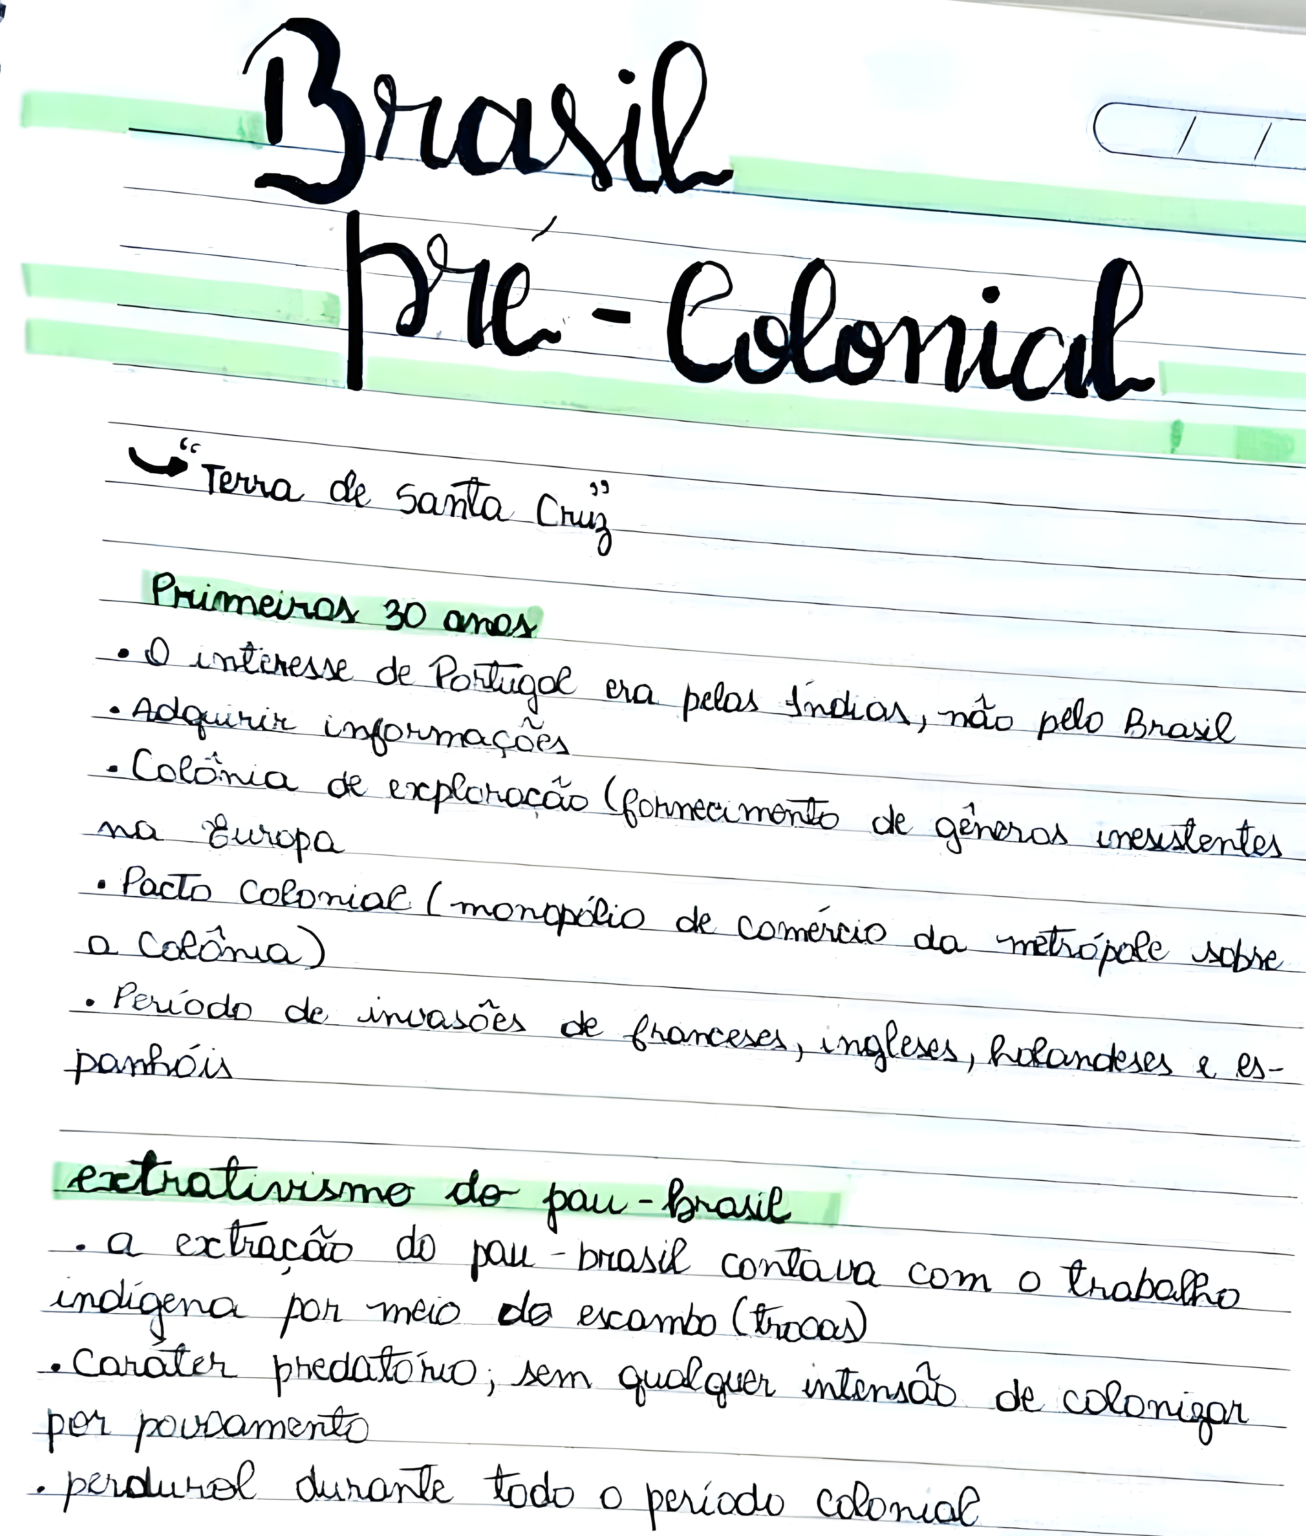 Brasil
pré-Colonial
"Terra de Santa Cruz"
Primeiros 30 anos
• O interesse de Portugal era pelas Índias, não pelo Brasil
• Adquirir informações
• Colônia de exploração (fornecimento de gêneros inexistentes
na Europa
• Pacto Colonial (monopólio de comércio da metrópole sobre
a Colônia)
• Período de invasões de franceses, ingleses, holandeses e es-
panhóis
extrativismo do pau-brasil
• a extração do pau-brasil contava com o trabalho
indígena por meio do escambo (trocas)
• Caráter predatório; sem qualquer intensão de colonizar
por povoamento
• perdurol durante todo o período colonial